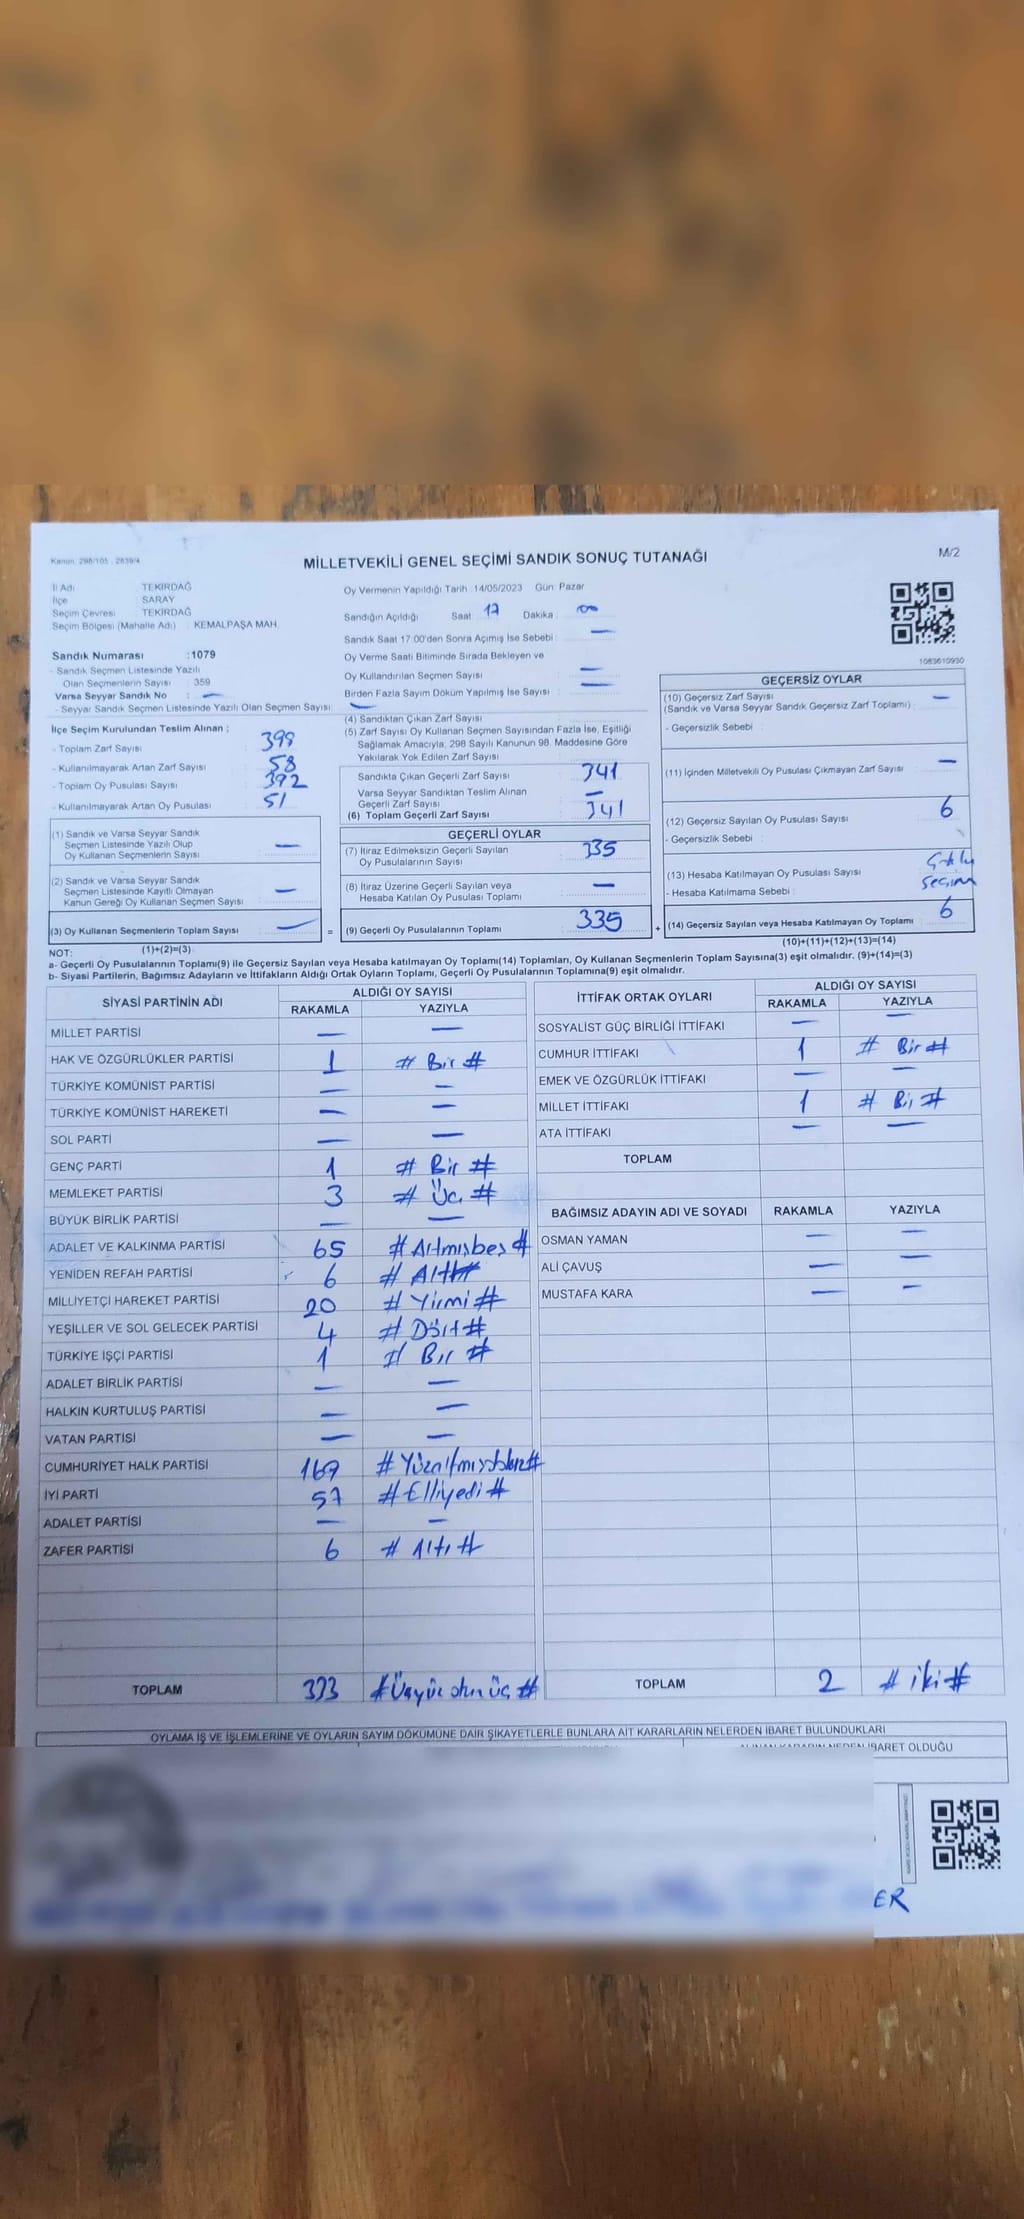 Kanun. 298/105 , 2839/4
MİLLETVEKİLİ GENEL SEÇİMİ SANDIK SONUÇ TUTANAĞI
M/2
İl Adı : TEKİRDAĞ
İlçe : SARAY
Seçim Çevresi : TEKİRDAĞ
Seçim Bölgesi (Mahalle Adı) : KEMALPAŞA MAH.
Oy Vermenin Yapıldığı Tarih :14/05/2023 Gün: Pazar
Sandığın Açıldığı Saat : 17 Dakika : 00
Sandık Saat 17:00'den Sonra Açımış İse Sebebi : —
Oy Verme Saati Bitiminde Sırada Bekleyen ve
Oy Kullandırılan Seçmen Sayısı : —
Birden Fazla Sayım Döküm Yapılmış İse Sayısı : —
1083610930
Sandık Numarası :1079
- Sandık Seçmen Listesinde Yazılı
Olan Seçmenlerin Sayısı : 359
Varsa Seyyar Sandık No : —
- Seyyar Sandık Seçmen Listesinde Yazılı Olan Seçmen Sayısı: —
İlçe Seçim Kurulundan Teslim Alınan ;
- Toplam Zarf Sayısı : 399
- Kullanılmayarak Artan Zarf Sayısı : 58
- Toplam Oy Pusulası Sayısı : 392
- Kullanılmayarak Artan Oy Pusulası : 51
(1) Sandık ve Varsa Seyyar Sandık
Seçmen Listesinde Yazılı Olup
Oy Kullanan Seçmenlerin Sayısı : —
(2) Sandık ve Varsa Seyyar Sandık
Seçmen Listesinde Kayıtlı Olmayan
Kanun Gereği Oy Kullanan Seçmen Sayısı : —
(3) Oy Kullanan Seçmenlerin Toplam Sayısı : —
(4) Sandıktan Çıkan Zarf Sayısı :
(5) Zarf Sayısı Oy Kullanan Seçmen Sayısından Fazla İse, Eşitliği
Sağlamak Amacıyla; 298 Sayılı Kanunun 98. Maddesine Göre
Yakılarak Yok Edilen Zarf Sayısı :
Sandıkta Çıkan Geçerli Zarf Sayısı : 341
Varsa Seyyar Sandıktan Teslim Alınan
Geçerli Zarf Sayısı : —
(6) Toplam Geçerli Zarf Sayısı : 341
GEÇERLİ OYLAR
(7) İtiraz Edilmeksizin Geçerli Sayılan
Oy Pusulalarının Sayısı : 335
(8) İtiraz Üzerine Geçerli Sayılan veya
Hesaba Katılan Oy Pusulası Toplamı : —
= (9) Geçerli Oy Pusulalarının Toplamı : 335
GEÇERSİZ OYLAR
(10) Geçersiz Zarf Sayısı
(Sandık ve Varsa Seyyar Sandık Geçersiz Zarf Toplamı) : —
- Geçersizlik Sebebi :
(11) İçinden Milletvekili Oy Pusulası Çıkmayan Zarf Sayısı : —
(12) Geçersiz Sayılan Oy Pusulası Sayısı : 6
- Geçersizlik Sebebi :
(13) Hesaba Katılmayan Oy Pusulası Sayısı :
- Hesaba Katılmama Sebebi : seçim
+ (14) Geçersiz Sayılan veya Hesaba Katılmayan Oy Toplamı : 6
NOT: (1)+(2)=(3)
(10)+(11)+(12)+(13)=(14)
a- Geçerli Oy Pusulalarının Toplamı(9) ile Geçersiz Sayılan veya Hesaba katılmayan Oy Toplamı(14) Toplamları, Oy Kullanan Seçmenlerin Toplam Sayısına(3) eşit olmalıdır. (9)+(14)=(3)
b- Siyasi Partilerin, Bağımsız Adayların ve İttifakların Aldığı Ortak Oyların Toplamı, Geçerli Oy Pusulalarının Toplamına(9) eşit olmalıdır.
SİYASİ PARTİNİN ADI ALDIĞI OY SAYISI
RAKAMLA YAZIYLA
MİLLET PARTİSİ — —
HAK VE ÖZGÜRLÜKLER PARTİSİ 1 # Bir #
TÜRKİYE KOMÜNİST PARTİSİ — —
TÜRKİYE KOMÜNİST HAREKETİ — —
SOL PARTİ — —
GENÇ PARTİ 1 # Bir #
MEMLEKET PARTİSİ 3 # Üç #
BÜYÜK BİRLİK PARTİSİ — —
ADALET VE KALKINMA PARTİSİ 65 # Altmışbeş #
YENİDEN REFAH PARTİSİ 6 # Altı #
MİLLİYETÇİ HAREKET PARTİSİ 20 # Yirmi #
YEŞİLLER VE SOL GELECEK PARTİSİ 4 # Dört #
TÜRKİYE İŞÇİ PARTİSİ 1 # Bir #
ADALET BİRLİK PARTİSİ — —
HALKIN KURTULUŞ PARTİSİ — —
VATAN PARTİSİ — —
CUMHURİYET HALK PARTİSİ 169 # Yüzaltmışdokuz #
İYİ PARTİ 57 # Elliyedi #
ADALET PARTİSİ — —
ZAFER PARTİSİ 6 # Altı #
TOPLAM 333 # Üçyüz otuz üç #
İTTİFAK ORTAK OYLARI ALDIĞI OY SAYISI
RAKAMLA YAZIYLA
SOSYALİST GÜÇ BİRLİĞİ İTTİFAKI — —
CUMHUR İTTİFAKI 1 # Bir #
EMEK VE ÖZGÜRLÜK İTTİFAKI — —
MİLLET İTTİFAKI 1 # Bir #
ATA İTTİFAKI — —
TOPLAM
BAĞIMSIZ ADAYIN ADI VE SOYADI RAKAMLA YAZIYLA
OSMAN YAMAN — —
ALİ ÇAVUŞ — —
MUSTAFA KARA — —
TOPLAM 2 # iki #
OYLAMA İŞ VE İŞLEMLERİNE VE OYLARIN SAYIM DÖKÜMÜNE DAİR ŞİKAYETLERLE BUNLARA AİT KARARLARIN NELERDEN İBARET BULUNDUKLARI
İBARET OLDUĞU
ER